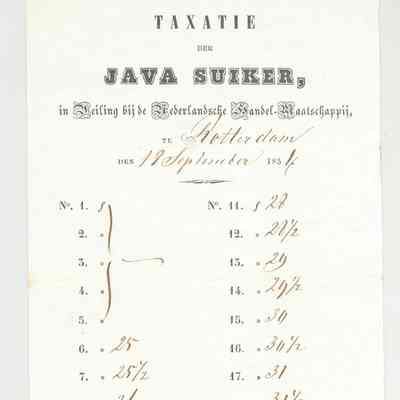 TAXATIE
DER
JAVA SUIKER,
in Veiling bij de Nederlandsche Handel-Maatschappij,
TE Rotterdam
DEN 18 September 1854
No. 1. f No. 11. f 28
2. „ 12. „ 28½
3. „ — 13. „ 29
4. „ 14. „ 29½
5. „ 15. „ 30
6. „ 25 16. „ 30½
7. „ 25½ 17. „ 31